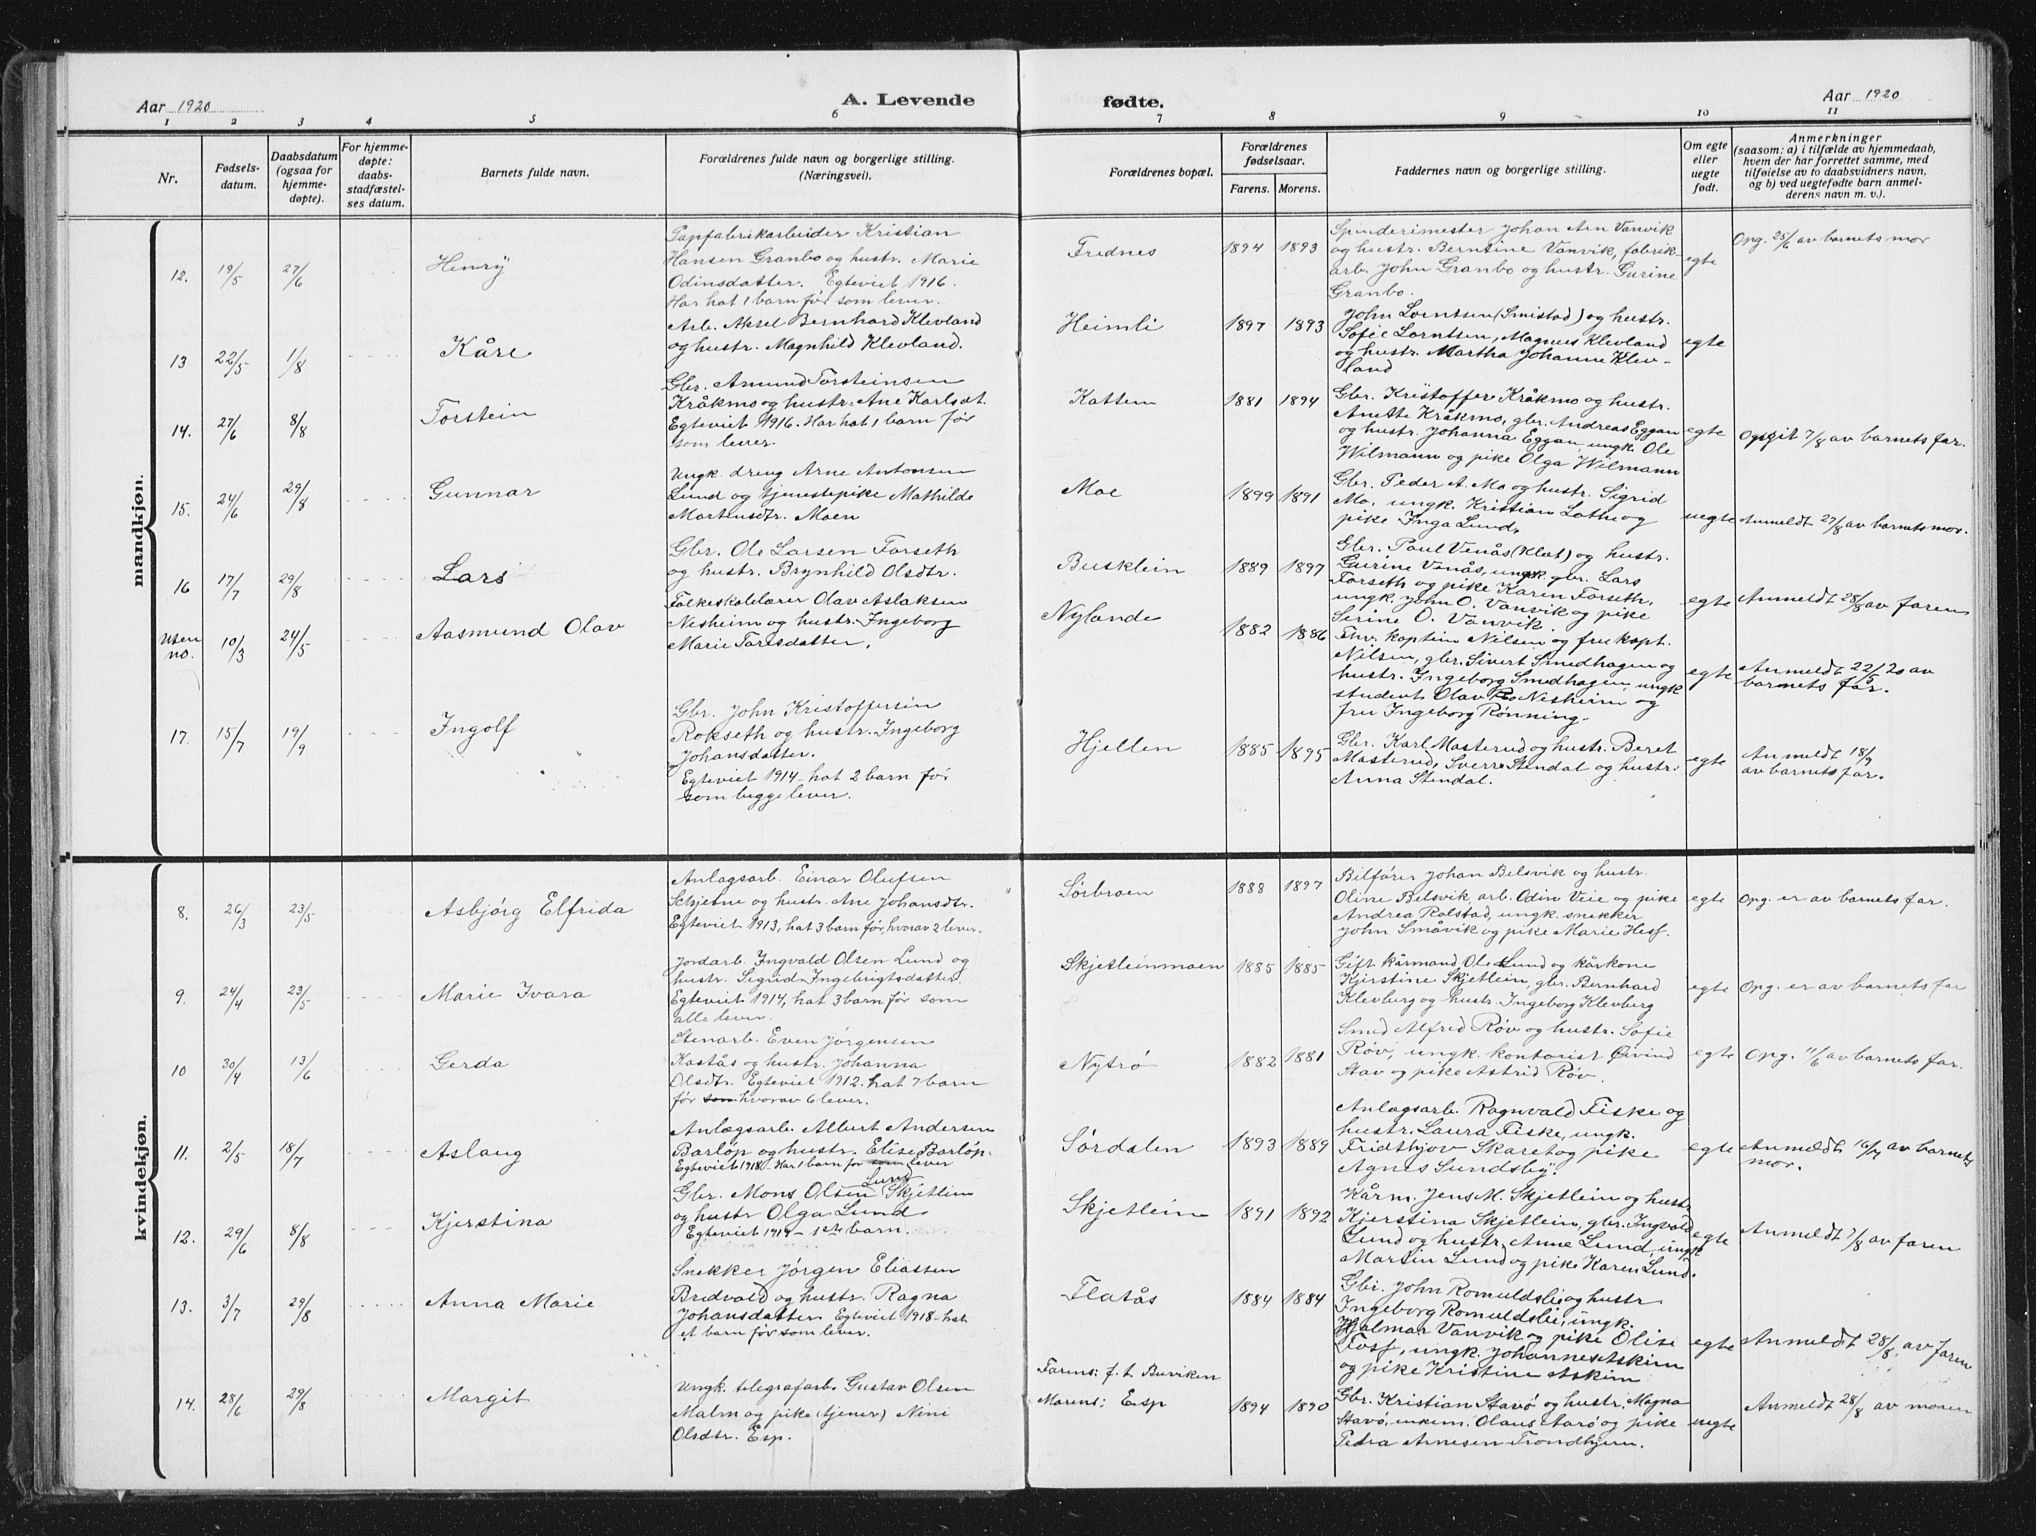 Aar 1920
A. Levende
fødte.
Aar 1920
1 2 3 4 5 6 7 8 9 10 11
Nr.
Fødsels-
datum.
Daabsdatum
(ogsaa for
hjemme-
døpte).
For hjemme-
døpte:
daabs-
stadfæstel-
ses datum.
Barnets fulde navn.
Forældrenes fulde navn og borgerlige stilling.
(Næringsvei).
Forældrenes bopæl.
Forældrenes
fødselsaar.
Farens. Morens.
Faddernes navn og borgerlige stilling.
Om egte
eller
uegte
født.
Anmerkninger
(saasom: a) i tilfælde av hjemmedaab,
hvem der har forrettet samme, med
tilføielse av to daabsvidners navn,
og b) ved uegtefødte barn anmel-
derens navn m. v.).
mandkjøn.
12. 19/5 27/6
Henry
Papfabrikarbeider Kristian
Hansen Granbo og hustr. Marie
Odinsdatter. Egteviet 1916.
Har hat 1 barn før som lever.
Frednes
1894 1893
Spinderimester Johan Arn Vanvik
og hustr. Berntine Vanvik, fabrik-
arb. John Granbo og hustr. Gurine
Granbo.
egte
Opg. 25/6 av barnets mor
13 22/5 1/8
Kåre
Arb. Aksel Bernhard Klevland
og hustr. Magnhild Klevland.
Heimli
1897 1893
John Lorntsen (Smistad) og hustr.
Sofie Lorntsen, Magnus Klevland
og hustr. Martha Johanne Klev-
land
egte
14. 27/6 8/8
Torstein
Gbr. Amund Torsteinsen
Kråkmo og hustr. Ane Karlsdt.
Egteviet 1916. Har hat 1 barn før
som lever.
Kattem
1881 1894
Gbr. Kristoffer Kråkmo og hustr.
Anette Kråkmo, gbr. Andreas Eggan
og hustr. Johanna Eggan, ungk. Ole
Wilmann og pike Olga Wilmann
egte
Opgit 7/8 av barnets far.
15. 24/6 29/8
Gunnar
Ungk. dreng Arne Antonsen
Lund og tjenestepike Mathilde
Martinsdtr. Moen
Moe
1899 1891
Gbr. Peder A. Mo og hustr. Sigrid
Mo, ungk. Kristian Lothe og
pike Inga Lund.
uegte
Anmeldt 27/8 av barnets mor.
16 17/7 29/8
Lars
Gbr. Ole Larsen Forseth
og hustr. Brynhild Olsdtr.
Busklein
1889 1897
Gbr. Paul Venås (Klæt) og hustr.
Gurine Venås, ungk. gbr. Lars
Forseth og pike Karen Forseth,
ungk. John O. Vanvik og pike
Serine O. Vanvik.
egte
Anmeldt 28/8 av faren
Uten
no. 10/3 24/5
Aasmund Olav
Folkeskolelærer Olav Aslaksen
Nesheim og hustr. Ingeborg
Marie Torisdatter.
Nylande
1882 1886
Fhv. kaptein Nilsen og fru kapt.
Nilsen, gbr. Sivert Smedhagen og
hustr. Ingeborg Smedhagen, ungk
student Olav Nesheim og
fru Ingeborg Rønning.
egte
Anmeldt 22/5 20 av
barnets far.
17. 15/7 19/9
Ingolf
Gbr. John Kristoffersen
Rokseth og hustr. Ingeborg
Johansdatter.
Egteviet 1914 - hat 2 barn før
som begge lever.
Hjellen
1885 1895
Gbr. Karl Masterud og hustr. Beret
Masterud, Sverre Stendal og hustr.
Anna Stendal.
egte
Anmeldt 18/9
av barnets far.
kvindekjøn.
8. 26/3 23/5
Asbjörg Elfrida
Anlægsarb. Einar Olufsen
Schjetne og hustr. Ane Johansdtr.
Egteviet 1913, hat 3 barn før, hvorav 2 lever.
Sörbroen
1888 1897
Bilfører Johan Belsvik og hustr.
Oline Belsvik, arb. Odin Veie og pike
Andrea Rolstad, ungk. snekker
John Småvik og pike Marie Hesf.
egte
Opg. er av barnets far.
9. 24/4 23/5
Marie Ivara
Jordarb. Ingvald Olsen Lund og
hustr. Sigrid Ingebrigtsdatter
Egteviet 1914, hat 3 barn før som
alle lever.
Skjetleinmoen
1885 1885
Gift kårmand Ole Lund og kårkone
Kjerstine Skjetlein, gbr. Bernhard
Klevberg og hustr. Ingeborg Klevberg
egte
Opg. er av barnets far
10 30/4 13/6
Gerda
Stenarb. Even Jørgensen
Kastås og hustr. Johanna
Olsdtr. Egteviet 1912. hat 7 barn
før som hvorav 6 lever.
Nytrø
1882 1881
Smed Alfred Røv og hustr. Sofie
Røv, ungk. kontorist Øivind
Stav og pike Astrid Røv.
egte
Opg. 11/6 av barnets far.
11. 2/5 18/7
Aslaug
Anlægsarb. Albert Andersen
Barløp og hustr. Elise Barløp.
Egteviet 1918. Har 1 barn før som lever
Sørdalen
1893 1889
Anlægsarb. Ragnvald Fiske og
hustr. Laura Fiske, ungk.
Fridthjov Skaret og pike
Agnes Sundsby.
egte
Anmeldt 16/7 av barnets
mor.
12. 29/6 8/8
Kjerstina
Gbr. Mons Olsen Lund Skjetlein
og hustr Olga Lund
Egteviet 1919 - 1ste barn.
Skjetlein
1891 1892
Kårm. Jens M. Skjetlein og hustr
Kjerstina Skjetlein, gbr. Ingvald
Lund og hustr. Anne Lund, ungk
Martin Lund og pike Karen Lund.
egte
Anmeldt 7/8 av faren
13. 3/7 29/8
Anna Marie
Snekker Jørgen Eliassen
Bredvold og hustr. Ragna
Johansdatter Egteviet 1918 - hat
et barn før som lever.
Flatås
1884 1884
Gbr. John Romuldsli og hustr
Ingeborg Romuldsli, ungk.
Hjalmar Vanvik og pike Olise
Fosf, ungk. Johannes Askim
og pike Kristine Askim
egte
Anmeldt 28/8 av faren
14. 28/6 29/8
Margit
Ungk. telegrafarb. Gustav Olsen
Malm og pike (tjener) Nini
Olsdtr. Esp.
Farens: f. t. Buviken
Morens: Esp
1894 1890
Gbr. Kristian Stavø og hustr. Magna
Stavø, enkem. Olaus Aarø og pike
Pedra Arnesen Trondhjem.
uegte
Anmeldt 28/8 av moren